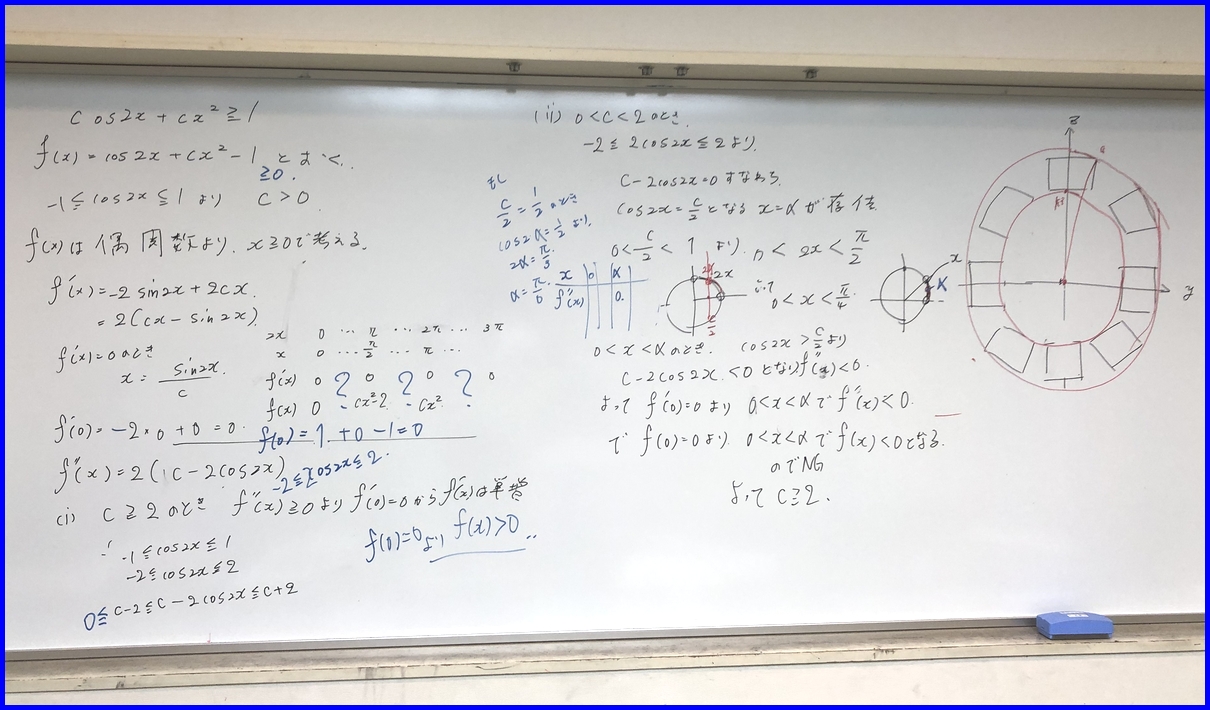 cos2x + cx² ≧ 1
f(x) = cos2x + cx² - 1 とおく.
≧0.
-1 ≦ cos2x ≦ 1 より C > 0
f(x)は偶関数より. x≧0で考える.
f'(x) = -2 sin2x + 2cx.
= 2(cx - sin2x).
f'(x)=0のとき
x = sin2x / c
2x 0 … π … 2π … 3π
x 0 … π/2 … π …
f'(x) 0 ? 0 ? 0 ? 0
f(x) 0 - cx²-2 - cx² -
f'(0) = -2×0 + 0 = 0.
f(0) = 1 + 0 - 1 = 0
f''(x) = 2(C - 2cos2x)
-2 ≦ 2cos2x ≦ 2.
(i) C ≧ 2のとき f''(x) ≧ 0より f'(0)=0から f'(x)は単増
f(0)=0より f(x)>0
-1 ≦ cos2x ≦ 1
-2 ≦ cos2x ≦ 2
0 ≦ C-2 ≦ C - 2cos2x ≦ C+2
(ii) 0<C<2のとき.
-2 ≦ 2cos2x ≦ 2より.
C-2cos2x=0 すなわち.
cos2x = C/2 となる x=αが存在.
もし
C/2 = 1/2 のとき
cos2α = 1/2 より.
2α = π/3
α = π/6
0 < C/2 < 1 より. 0 < 2x < π/2
x 0 α
f''(x) 0.
2x
C/2
0 < x < π/4.
x
0<x<αのとき. cos2x > C/2 より
C-2cos2x.<0 となり f''(x)<0.
よって f'(0)=0より 0<x<αで f'(x)<0.
で f(0)=0より. 0<x<αで f(x)<0となる.
のでNG
よって C≧2.
z
y